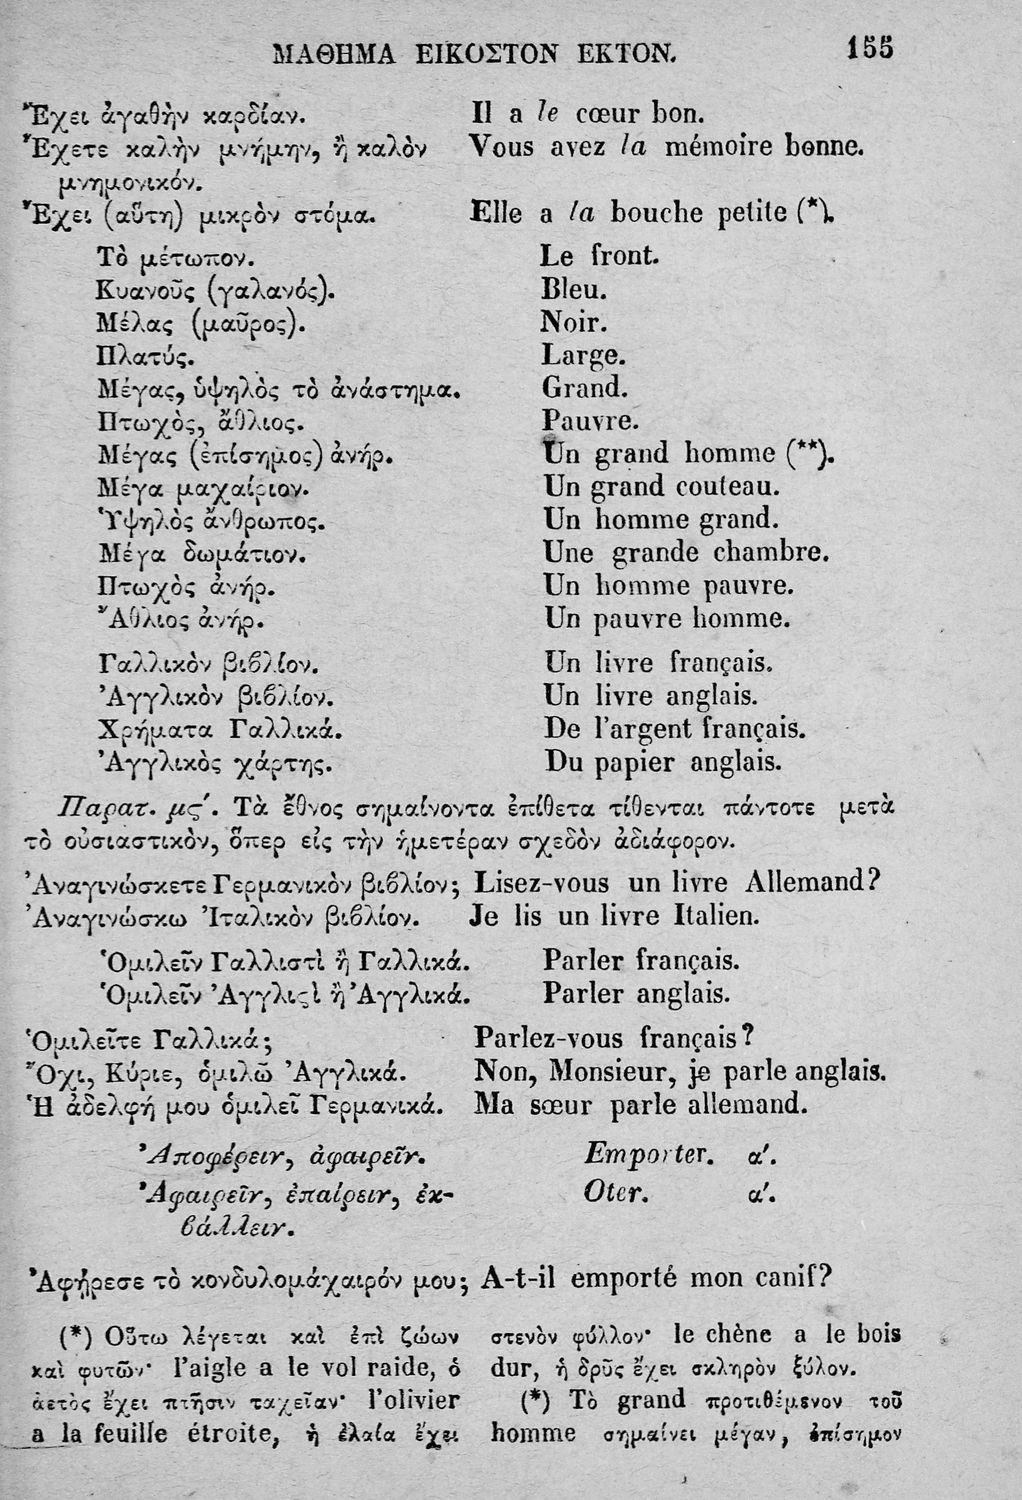 ΜΑΘΗΜΑ ΕΙΚΟΣΤΟΝ ΕΚΤΟΝ. 155
Ἔχει ἀγαθὴν καρδίαν. Il a le cœur bon.
Ἔχετε καλὴν μνήμην, ἢ καλὸν Vous avez la mémoire bonne.
μνημονικόν.
Ἔχει (αὕτη) μικρὸν στόμα. Elle a la bouche petite (*).
Τὸ μέτωπον. Le front.
Κυανοῦς (γαλανός). Bleu.
Μέλας (μαῦρος). Noir.
Πλατύς. Large.
Μέγας, ὑψηλὸς τὸ ἀνάστημα. Grand.
Πτωχὸς, ἄθλιος. Pauvre.
Μέγας (ἐπίσημος) ἀνήρ. Un grand homme (**).
Μέγα μαχαίριον. Un grand couteau.
Ὑψηλὸς ἄνθρωπος. Un homme grand.
Μέγα δωμάτιον. Une grande chambre.
Πτωχὸς ἀνήρ. Un homme pauvre.
Ἄθλιος ἀνήρ. Un pauvre homme.
Γαλλικὸν βιβλίον. Un livre français.
Ἀγγλικὸν βιβλίον. Un livre anglais.
Χρήματα Γαλλικά. De l'argent français.
Ἀγγλικὸς χάρτης. Du papier anglais.
Παρατ. μς΄. Τὰ ἔθνος σημαίνοντα ἐπίθετα τίθενται πάντοτε μετὰ
τὸ οὐσιαστικὸν, ὅπερ εἰς τὴν ἡμετέραν σχεδὸν ἀδιάφορον.
Ἀναγινώσκετε Γερμανικὸν βιβλίον; Lisez-vous un livre Allemand?
Ἀναγινώσκω Ἰταλικὸν βιβλίον. Je lis un livre Italien.
Ὁμιλεῖν Γαλλιστὶ ἢ Γαλλικά. Parler français.
Ὁμιλεῖν Ἀγγλιϛὶ ἢ Ἀγγλικά. Parler anglais.
Ὁμιλεῖτε Γαλλικά; Parlez-vous français?
Ὄχι, Κύριε, ὁμιλῶ Ἀγγλικά. Non, Monsieur, je parle anglais.
Ἡ ἀδελφή μου ὁμιλεῖ Γερμανικά. Ma sœur parle allemand.
Ἀποφέρειν, ἀφαιρεῖν. Emporter. α΄.
Ἀφαιρεῖν, ἐπαίρειν, ἐκ- Oter. α΄.
βάλλειν.
Ἀφῄρεσε τὸ κονδυλομάχαιρόν μου; A-t-il emporté mon canif?
(*) Οὕτω λέγεται καὶ ἐπὶ ζώων
καὶ φυτῶν· l'aigle a le vol raide, ὁ
ἀετὸς ἔχει πτῆσιν ταχεῖαν· l'olivier
a la feuille étroite, ἡ ἐλαία ἔχει
στενὸν φύλλον· le chêne a le bois
dur, ἡ δρῦς ἔχει σκληρὸν ξύλον.
(*) Τὸ grand προτιθέμενον τοῦ
homme σημαίνει μέγαν, ἐπίσημον